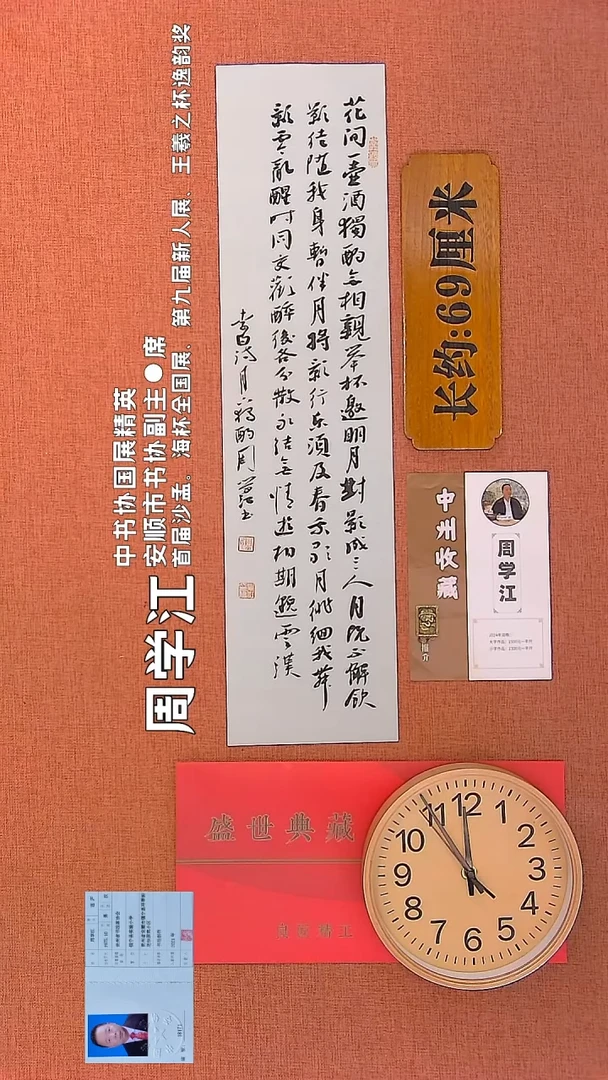 花间一壺酒獨酌無相親举杯邀明月對影成三人月既不解飲
影徒随我身暫伴月將影行樂須及春我歌月徘徊我舞
影零亂醒时同交歡醉後各分散永结無情遊相期邈雲漢
李白诗月下獨酌周學江书
中书协国展精英
安顺市书协副主●席
首届沙孟。海杯全国展、第九届新人展、王羲之杯逸韵奖
周学江
长约:69厘米
中州收藏
简介
周学江
盛世典藏
12
1
2
3
4
5
6
7
8
9
10
11